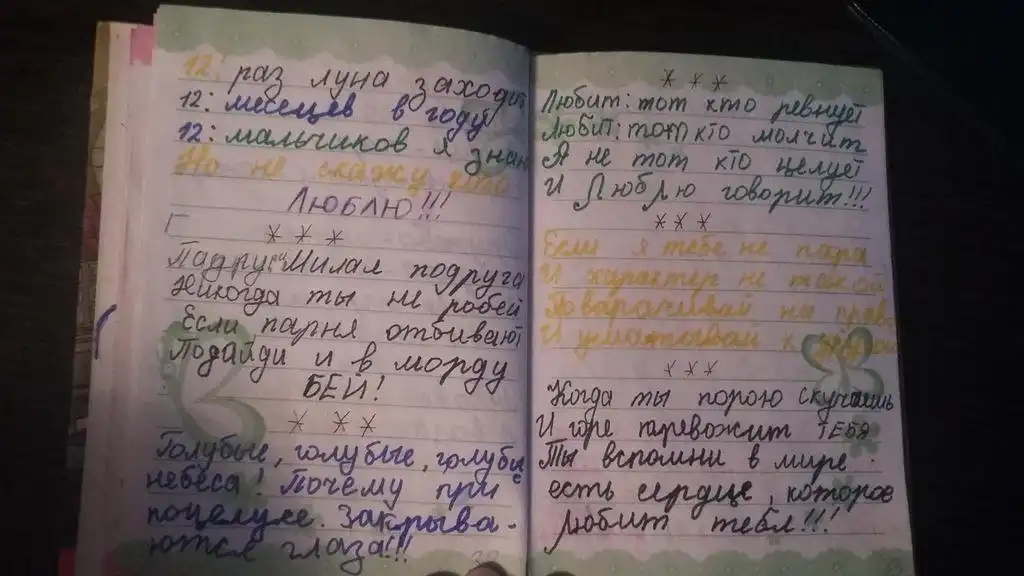 12: раз луна заходит
12: месяцев в году
12: мальчиков я знаю
Но не скажу кого
Люблю!!!
* * *
Падруга Милая подруга
Никогда ты не робей
Если парня отбивают
Подайди и в морду
БЕЙ!
* * *
Голубые, голубые, голубые
небеса! Почему при
поцелуе. Закрыва-
ются глаза!!!
* * *
Любит: тот кто ревнует
Любит: тот кто молчит
А не тот кто целует
И Люблю говорит!!!
* * *
Если я тебе не пара
И характер не такой
Поварачивай на право
И уматывай к
* * *
Когда ты порою скучаешь
И горе тревожит ТЕБЯ
Ты вспомни в мире
есть сердце, которое
любит тебя!!!